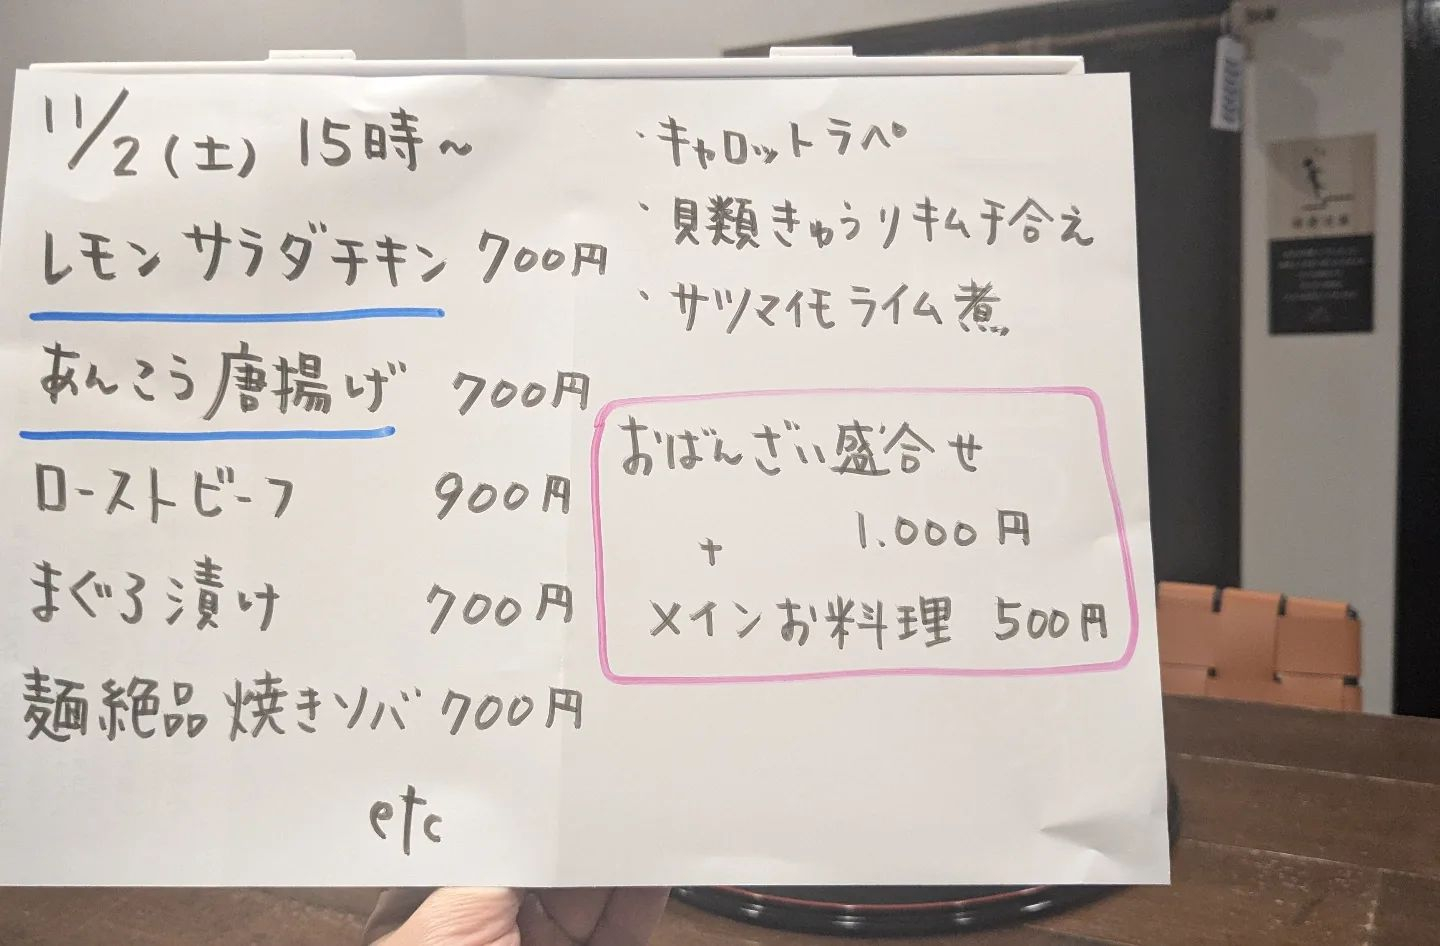 11/2(土) 15時~
レモンサラダチキン 700円
あんこう唐揚げ 700円
ローストビーフ 900円
まぐろ漬け 700円
麺絶品 焼きソバ 700円
etc
・キャロットラペ
・貝類きゅうりキムチ合え
・サツマイモライム煮
おばんざい盛合せ
1.000円
+
メインお料理 500円